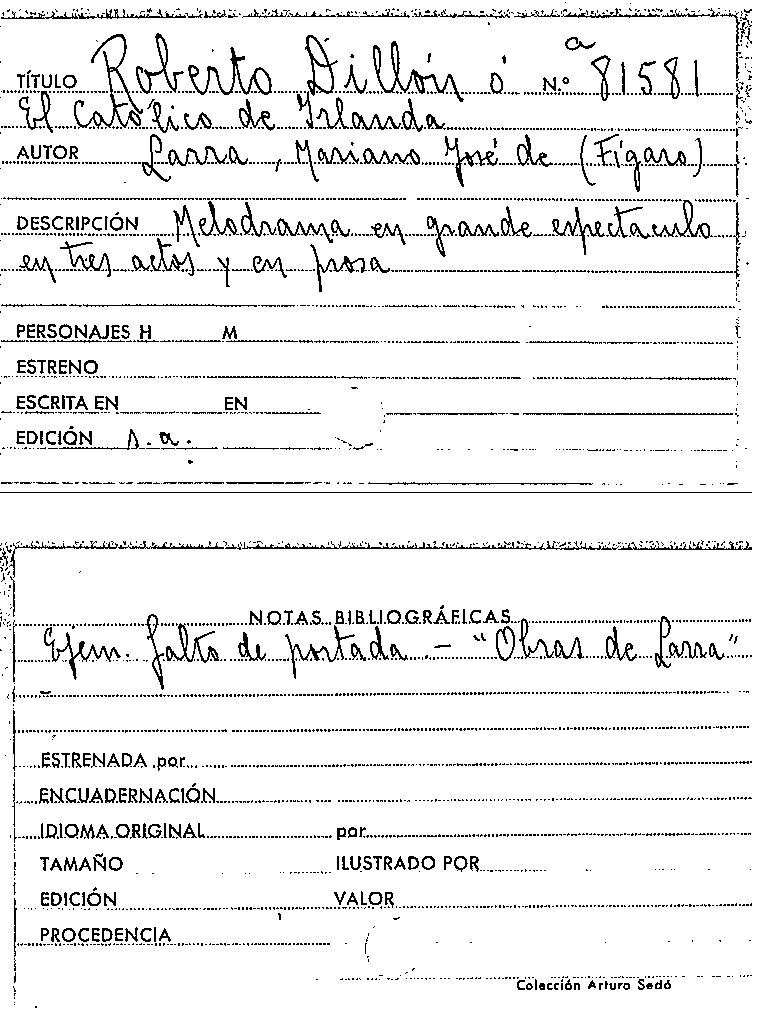 a
TÍTULO Roberto Dillón ó N.º 81581
El Católico de Irlanda
AUTOR Larra, Mariano José de (Fígaro)
DESCRIPCIÓN Melodrama en grande espectaculo
en tres actos y en prosa
PERSONAJES H M
ESTRENO
ESCRITA EN EN
EDICIÓN s.a.
NOTAS BIBLIOGRÁFICAS
Ejem. falto de portada. - "Obras de Larra"
ESTRENADA por
ENCUADERNACIÓN
IDIOMA ORIGINAL por
TAMAÑO ILUSTRADO POR
EDICIÓN VALOR
PROCEDENCIA
Colección Arturo Sedó